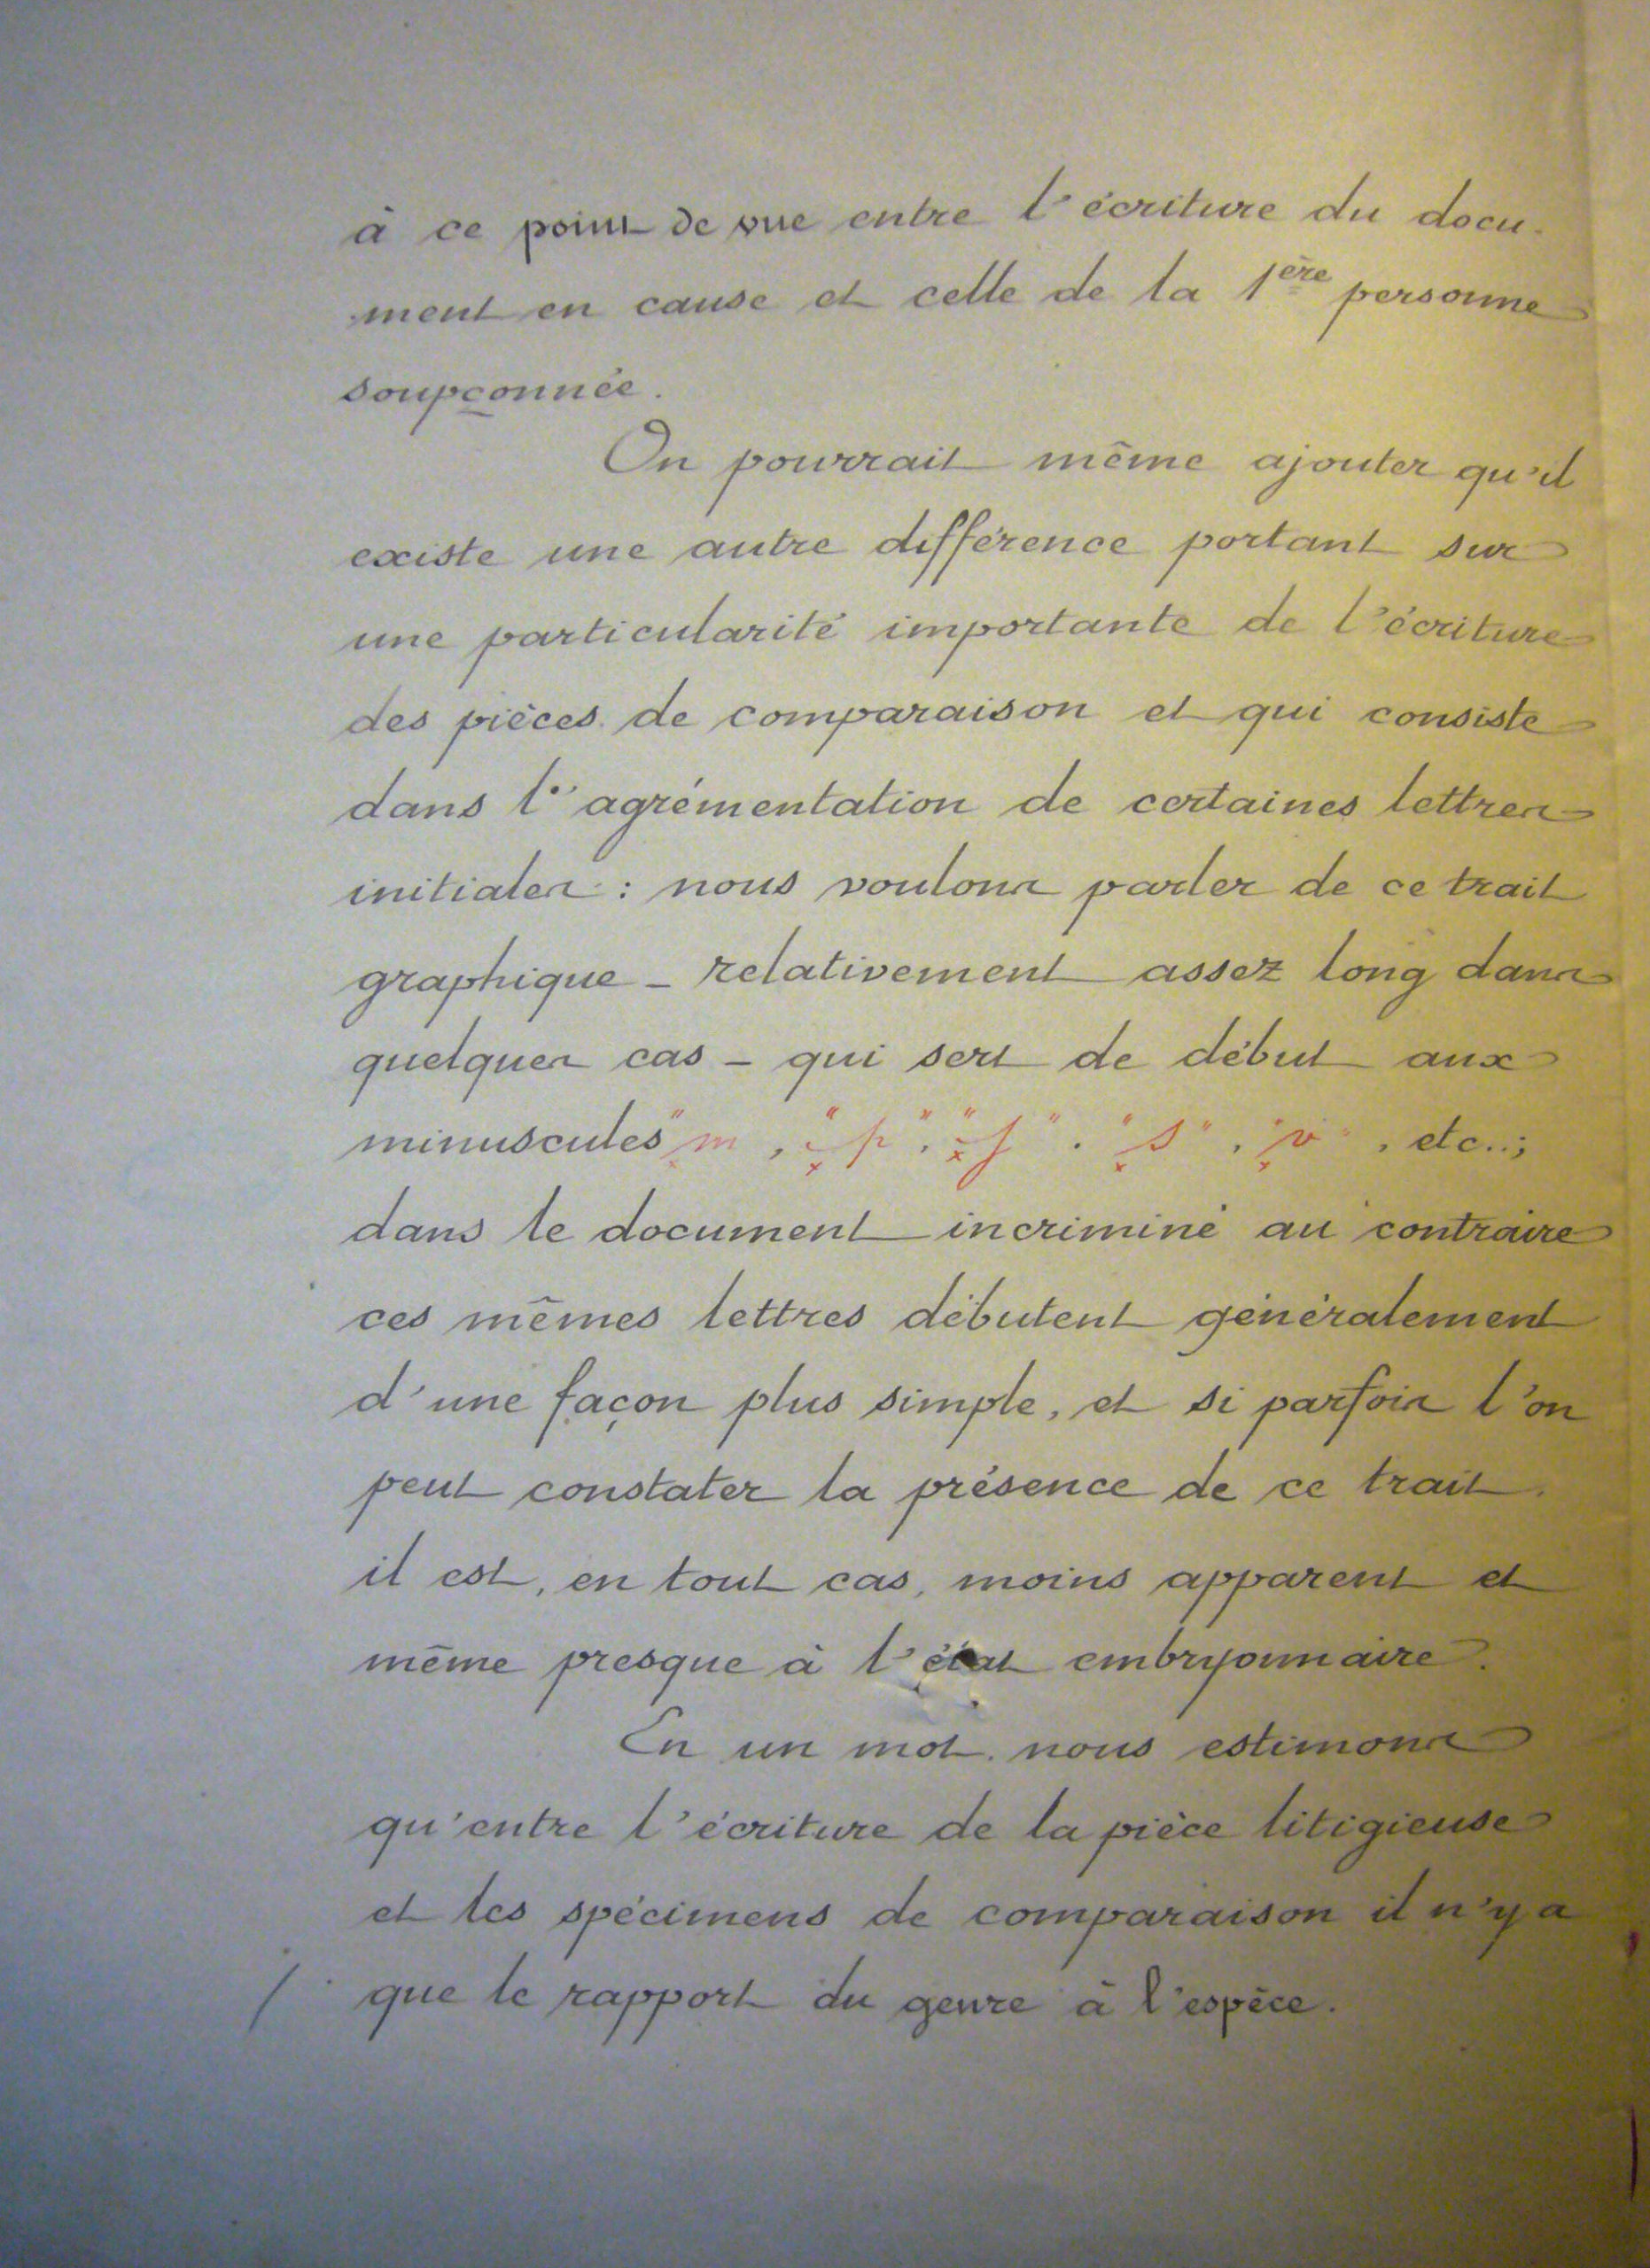 à ce point de vue entre l'écriture du docu-
ment en cause et celle de la 1ère personne
soupçonnée.
On pourrait même ajouter qu'il
existe une autre différence portant sur
une particularité importante de l'écriture
des pièces de comparaison et qui consiste
dans l'agrémentation de certaines lettres
initiales : nous voulons parler de ce trait
graphique - relativement assez long dans
quelques cas - qui sert de début aux
minuscules "m", "p", "f", "s", "v", etc..;
dans le document incriminé au contraire
ces mêmes lettres débutent généralement
d'une façon plus simple, et si parfois l'on
peut constater la présence de ce trait,
il est, en tout cas, moins apparent et
même presque à l'état embryonnaire.
En un mot, nous estimons
qu'entre l'écriture de la pièce litigieuse
et les spécimens de comparaison il n'y a
que le rapport du genre à l'espèce.